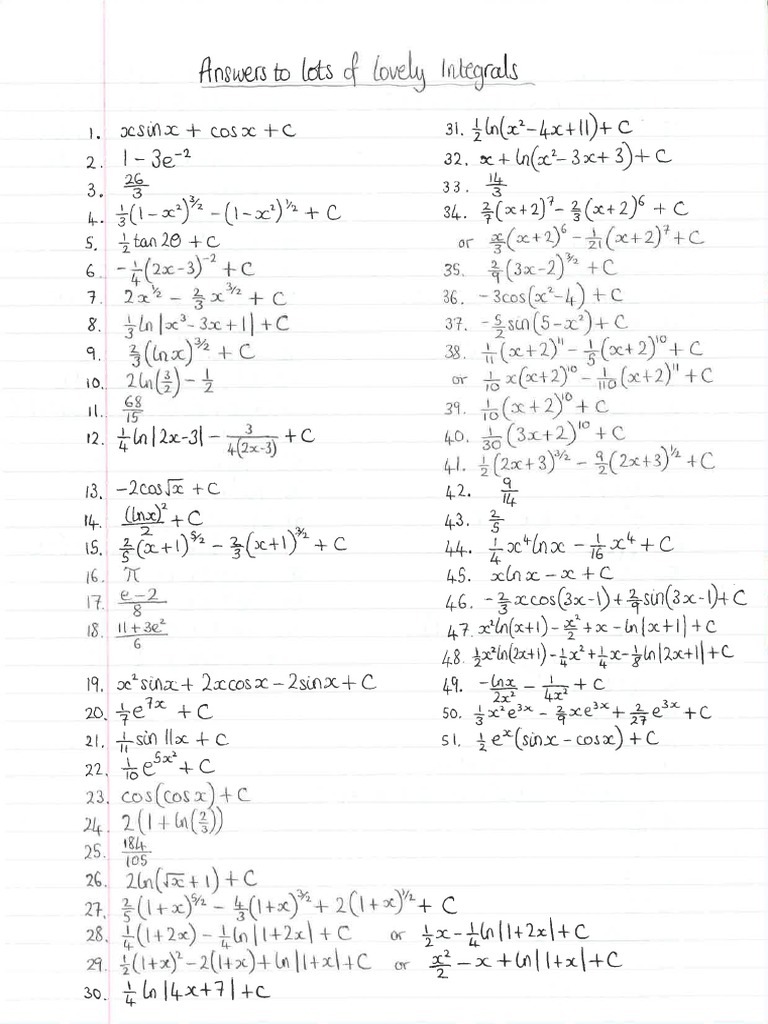 Answers to Lots of Lovely Integrals
1. xsinx + cosx + C
2. 1 - 3e⁻²
3. 26/3
4. ⅓(1-x²)^(3/2) - (1-x²)^(1/2) + C
5. ½tan2θ + C
6. -¼(2x-3)⁻² + C
7. 2x^(1/2) - ⅔x^(3/2) + C
8. ⅓ln|x³-3x+1| + C
9. ⅔(lnx)^(3/2) + C
10. 2ln(3/2) - ½
11. 68/15
12. ¼ln|2x-3| - 3/(4(2x-3)) + C
13. -2cos√x + C
14. (lnx)²/2 + C
15. ⅖(x+1)^(5/2) - ⅔(x+1)^(3/2) + C
16. π
17. (e-2)/8
18. (11+3e²)/6
19. x²sinx + 2xcosx - 2sinx + C
20. 1/7 e^(7x) + C
21. 1/11 sin11x + C
22. 1/10 e^(5x²) + C
23. cos(cosx) + C
24. 2(1 + ln(2/3))
25. 184/105
26. 2ln(√x + 1) + C
27. ⅖(1+x)^(5/2) - 4/3(1+x)^(3/2) + 2(1+x)^(1/2) + C
28. ¼(1+2x) - ¼ln|1+2x| + C or ½x - ¼ln|1+2x| + C
29. ½(1+x)² - 2(1+x) + ln|1+x| + C or x²/2 - x + ln|1+x| + C
30. ¼ln|4x+7| + C
31. ½ln(x²-4x+11) + C
32. x + ln(x²-3x+3) + C
33. 14/3
34. 2/7(x+2)⁷ - ⅔(x+2)⁶ + C
or x/3(x+2)⁶ - 1/21(x+2)⁷ + C
35. 2/9(3x-2)^(3/2) + C
36. -3cos(x²-4) + C
37. -5/2 sin(5-x²) + C
38. 1/11(x+2)¹¹ - 1/5(x+2)¹⁰ + C
or 1/10 x(x+2)¹⁰ - 1/110(x+2)¹¹ + C
39. 1/10(x+2)¹⁰ + C
40. 1/30(3x+2)¹⁰ + C
41. ½(2x+3)^(3/2) - 9/2(2x+3)^(1/2) + C
42. 9/14
43. 2/5
44. ¼x⁴lnx - 1/16 x⁴ + C
45. xlnx - x + C
46. -⅔xcos(3x-1) + 2/9 sin(3x-1) + C
47. x²ln(x+1) - x²/2 + x - ln|x+1| + C
48. ½x²ln(2x+1) - ¼x² + ¼x - ⅛ln|2x+1| + C
49. -lnx/2x² - 1/4x² + C
50. ⅓x²e^(3x) - 2/9 xe^(3x) + 2/27 e^(3x) + C
51. ½eˣ(sinx - cosx) + C